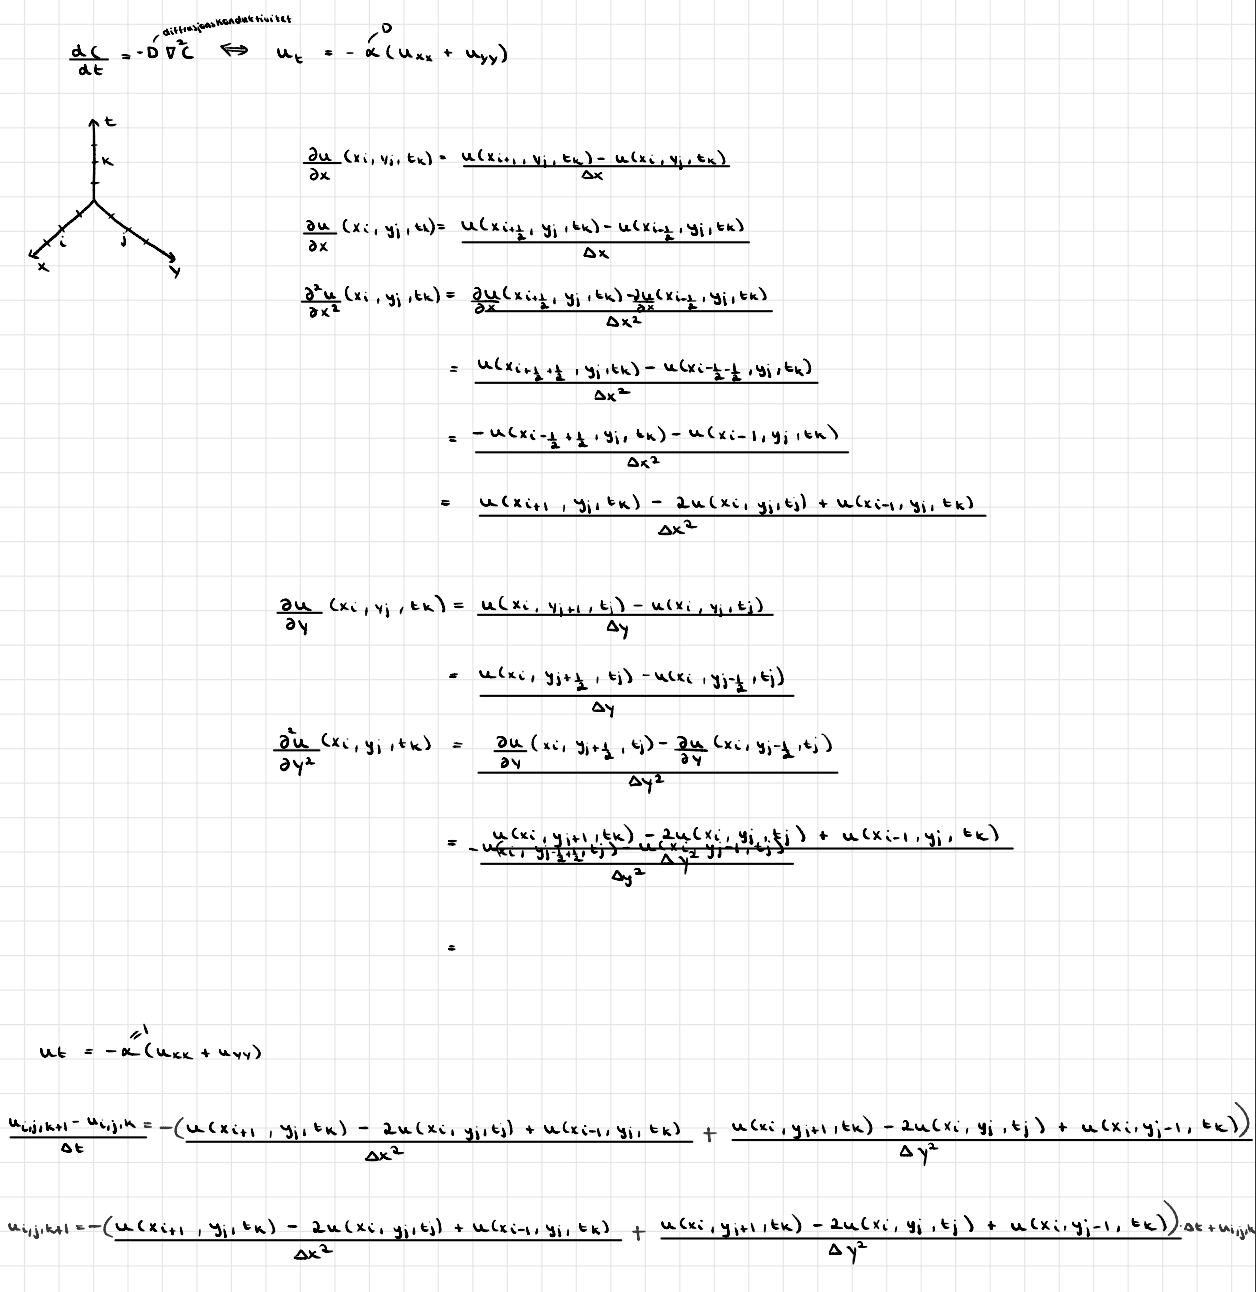 diffusjonskonduktivitet
dC/dt = -D ∇²C ⟺ u_t = - α(u_xx + u_yy)
D
t
k
i j
x y
∂u/∂x (xi, yj, tk) = (u(xi+1, yj, tk) - u(xi, yj, tk))/Δx
∂u/∂x (xi, yj, tk) = (u(xi+1/2, yj, tk) - u(xi-1/2, yj, tk))/Δx
∂²u/∂x² (xi, yj, tk) = (∂u/∂x(xi+1/2, yj, tk) - ∂u/∂x(xi-1/2, yj, tk))/Δx²
= (u(xi+1/2+1/2, yj, tk) - u(xi-1/2-1/2, yj, tk))/Δx²
= (-u(xi-1/2+1/2, yj, tk) - u(xi-1, yj, tk))/Δx²
= (u(xi+1, yj, tk) - 2u(xi, yj, tj) + u(xi-1, yj, tk))/Δx²
∂u/∂y (xi, yj, tk) = (u(xi, yj+1, tj) - u(xi, yj, tj))/Δy
= (u(xi, yj+1/2, tj) - u(xi, yj-1/2, tj))/Δy
∂²u/∂y² (xi, yj, tk) = (∂u/∂y (xi, yj+1/2, tj) - ∂u/∂y (xi, yj-1/2, tj))/Δy²
= (u(xi, yj+1, tk) - 2u(xi, yj, tj) + u(xi-1, yj, tk))/Δy²
(-u(xi, yj-1/2+1/2, tj) - u(xi, yj-1, tj))/Δy²
=
=1
ut = -α(uxx + uyy)
(ui,j,k+1 - ui,j,k)/Δt = -((u(xi+1, yj, tk) - 2u(xi, yj, tj) + u(xi-1, yj, tk))/Δx² + (u(xi, yj+1, tk) - 2u(xi, yj, tj) + u(xi, yj-1, tk))/Δy²)
ui,j,k+1 = -((u(xi+1, yj, tk) - 2u(xi, yj, tj) + u(xi-1, yj, tk))/Δx² + (u(xi, yj+1, tk) - 2u(xi, yj, tj) + u(xi, yj-1, tk))/Δy²)·Δt + ui,j,k